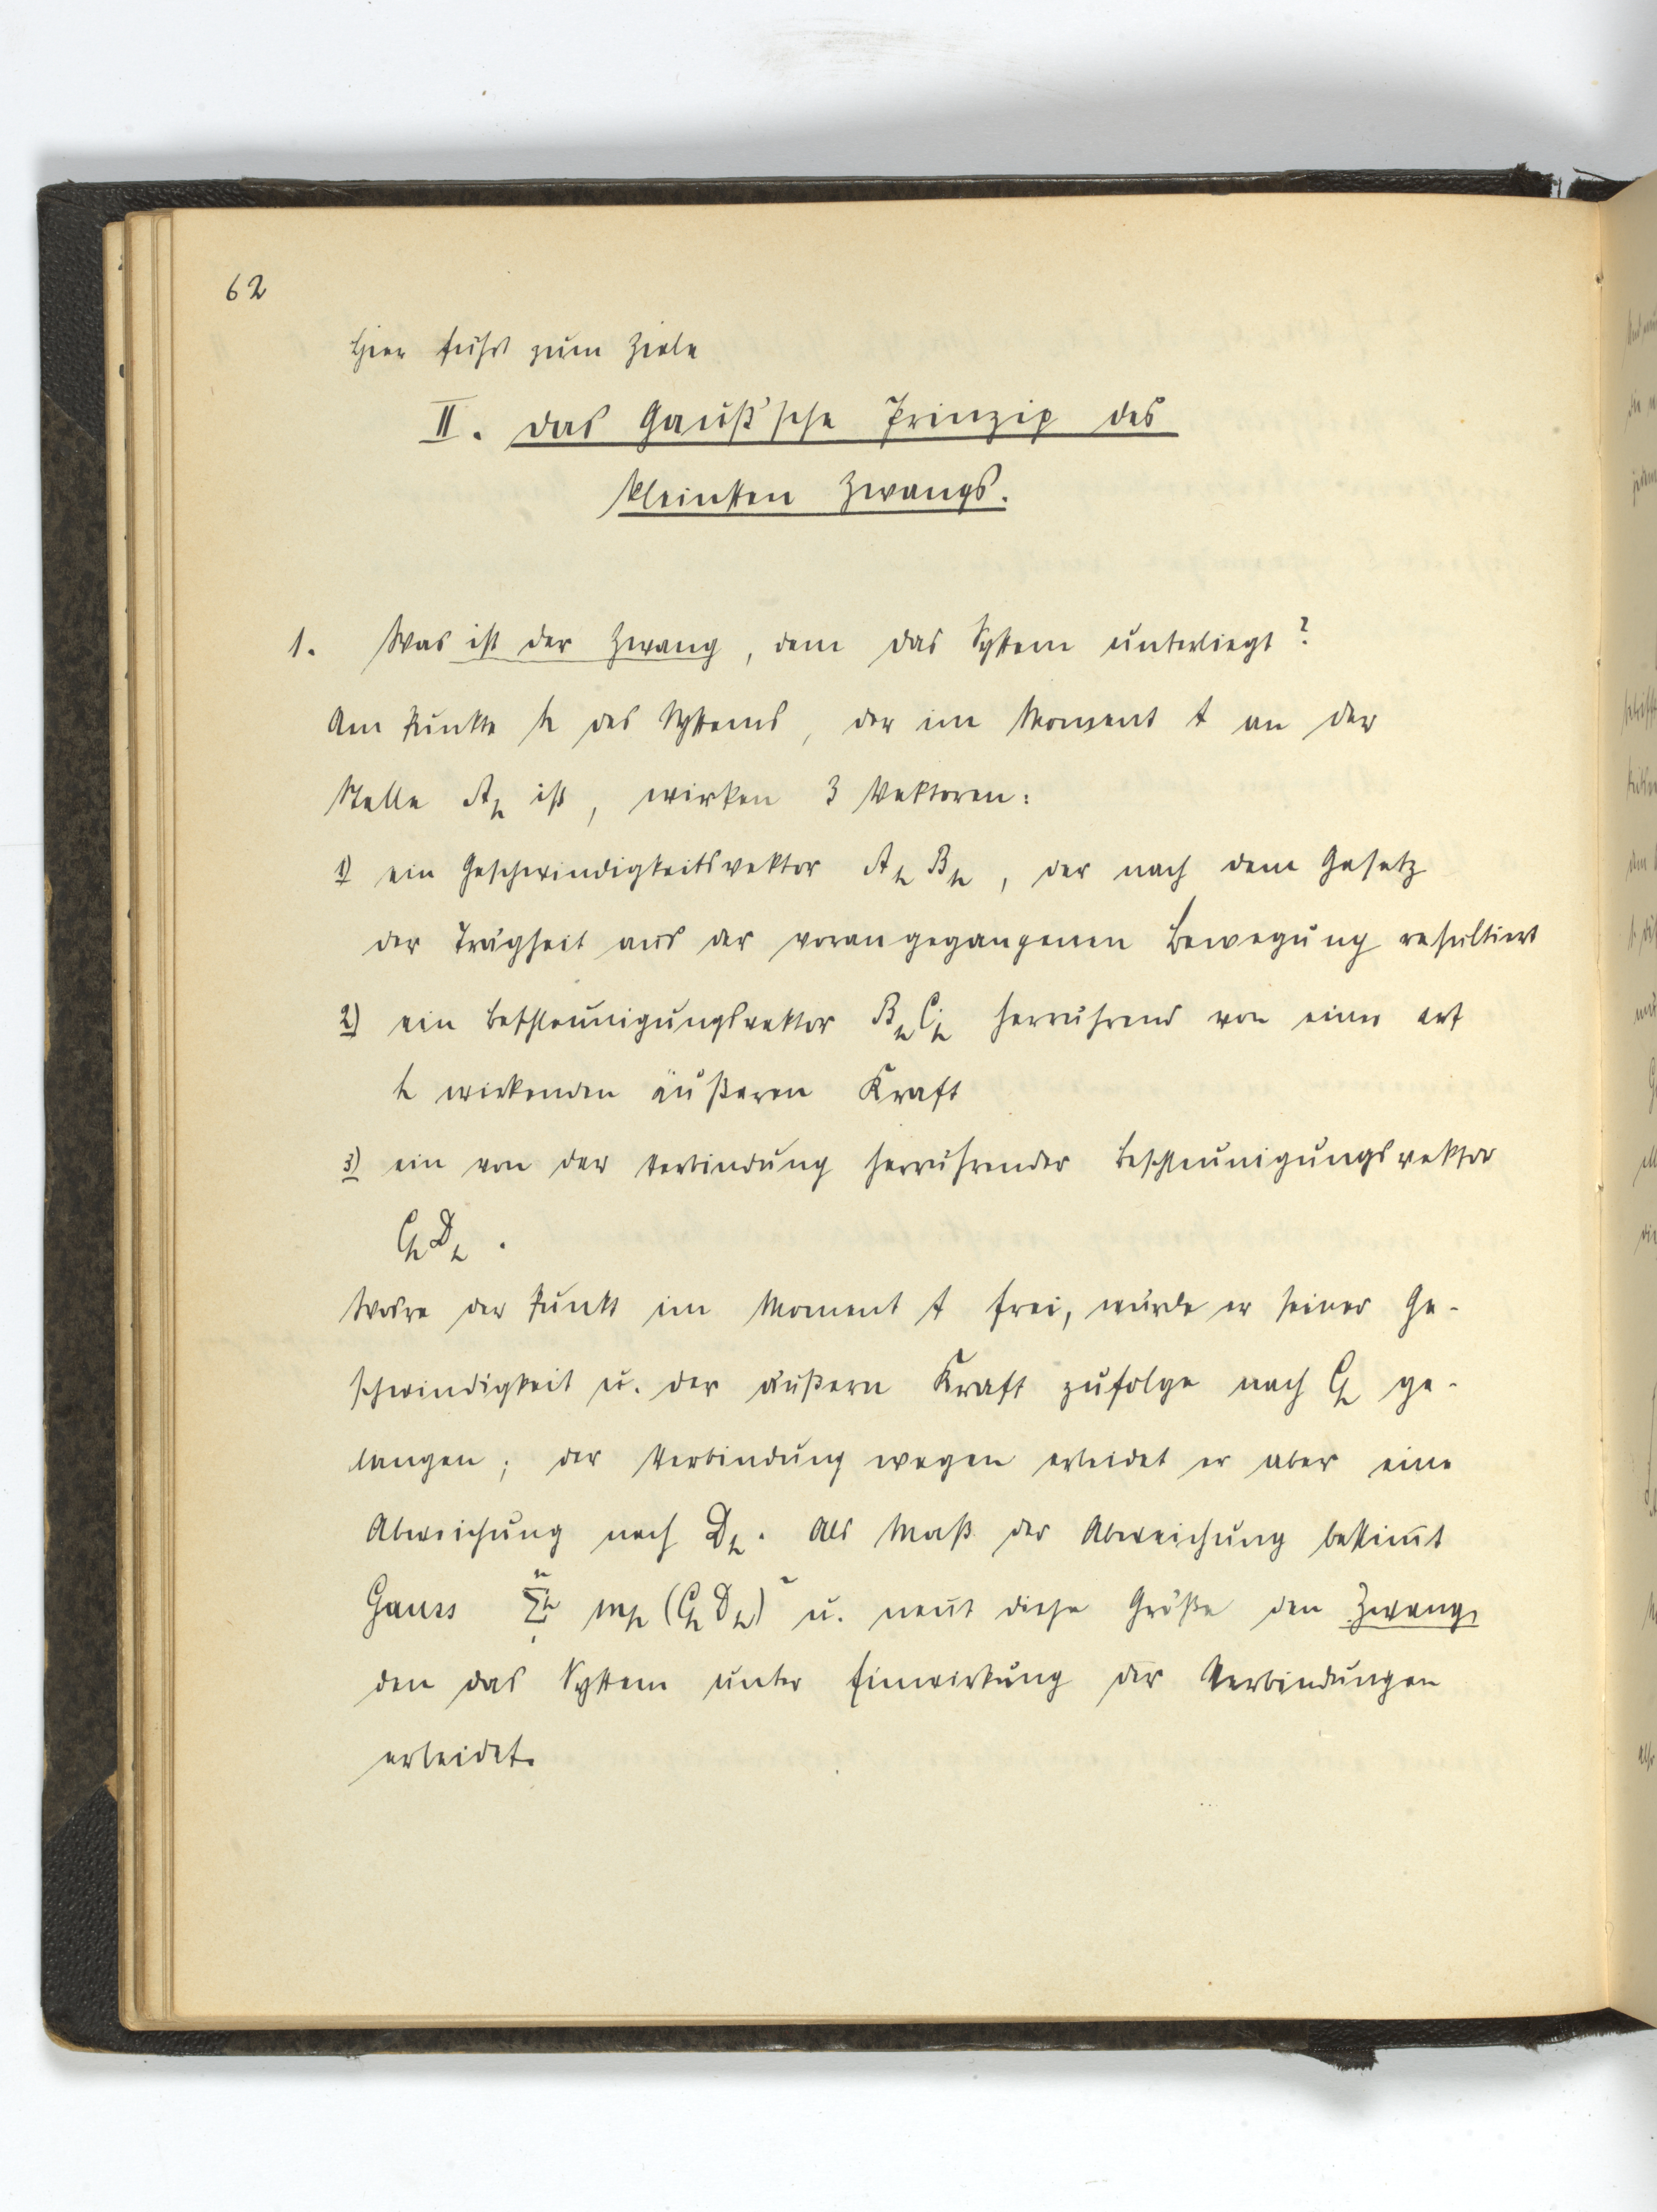 62
Hier führt zum Ziele
II. Das Gauß'sche Prinzip des
kleinsten Zwangs.
1. Was ist der Zwang, dem das System unterliegt?
Am Punkte h des Systems, der im Moment t an der
Stelle A_h ist, wirken 3 Vektoren:
1) ein Geschwindigkeitsvektor A_h B_h, der nach dem Gesetz
der Trägheit aus der vorangegangenen Bewegung resultiert
2) ein Beschleunigungsvektor B_h C_h herrührend von einer auf
h wirkenden äußeren Kraft
3) ein von der Verbindung herrührender Beschleunigungsvektor
C_h D_h.
Wäre der Punkt im Moment t frei, würde er seiner Ge-
schwindigkeit u. der äußern Kraft zufolge nach C_h ge-
langen; der Verbindung wegen erleidet er aber eine
Abweichung nach D_h. Als Maß der Abweichung bestim̄t
Gauss Σ_1^n h m_h (C_h D_h)² u. nen̄t diese Größe den Zwang,
den das System unter Einwirkung der Verbindungen
erleidet.